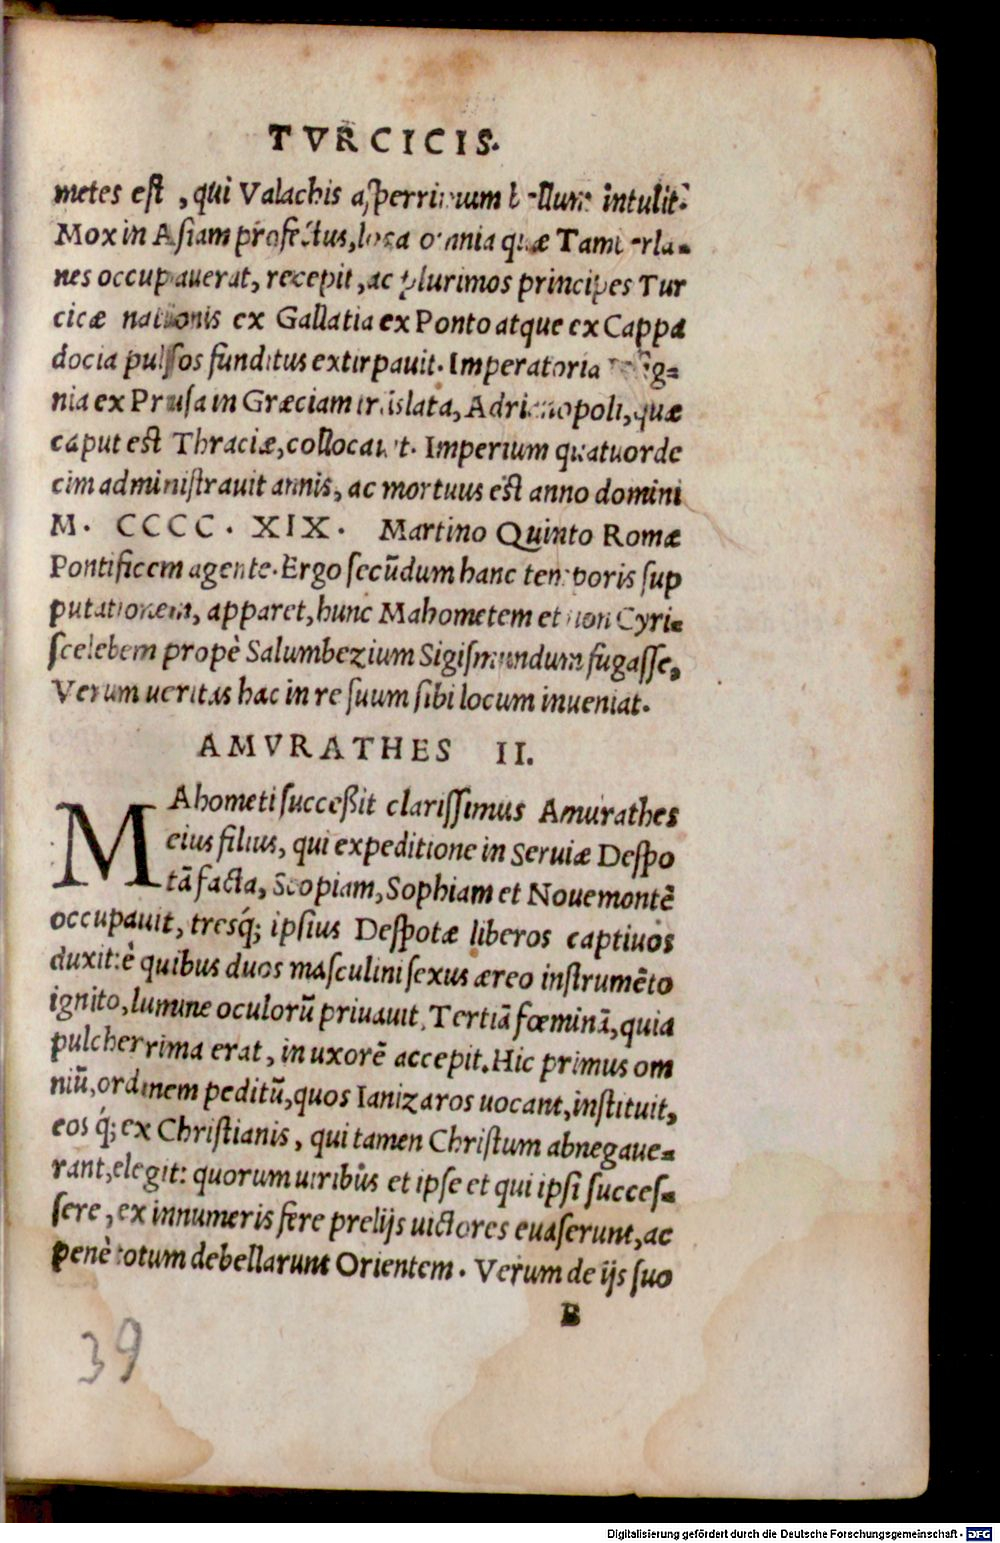 TVRCICIS.
metes eſt , qui Valachis aſperrimum bellum intulit:
Mox in Aſiam profectus, loca omnia quæ Tamberla-
nes occupauerat, recepit, ac plurimos principes Tur
cicæ nationis ex Gallatia ex Ponto atque ex Cappa
docia pulſos funditus extirpauit. Imperatoria Inſig-
nia ex Pruſa in Græciam trãslata, Adrianopoli, quæ
caput est Thraciæ, collocauit. Imperium quatuorde
cim adminiſtrauit annis, ac mortuus est anno domini
M. CCCC. XIX. Martino Quinto Romæ
Pontificem agente. Ergo ſecũdum hanc temporis ſup
putationem, apparet, hunc Mahometem et non Cyri-
ſcelebem propè Salumbezium Sigiſmundum fugaſſe,
Verum ueritas hac in re ſuum ſibi locum inueniat.
AMVRATHES II.
MAhometi ſucceßit clariſſimus Amurathes
eius filius, qui expeditione in Seruiæ Deſpo
tã facta, Scopiam, Sophiam et Nouemontẽ
occupauit, tresq́; ipſius Deſpotæ liberos captiuos
duxit: è quibus duos maſculini ſexus æreo inſtrumẽto
ignito, lumine oculorũ priuauit. Tertiã fœminã, quia
pulcherrima erat, in uxorẽ accepit. Hic primus om
niũ, ordinem peditũ, quos Ianizaros uocant, inſtituit,
eos q́; ex Chriſtianis, qui tamen Chriſtum abnegaue-
rant, elegit: quorum uiribus et ipſe et qui ipſi succeſ-
ſere, ex innumeris fere prelijs uictores euaſerunt, ac
penè totum debellarunt Orientem. Verum de ijs ſuo
B
39
Digitalisierung gefördert durch die Deutsche Forschungsgemeinschaft - DFG